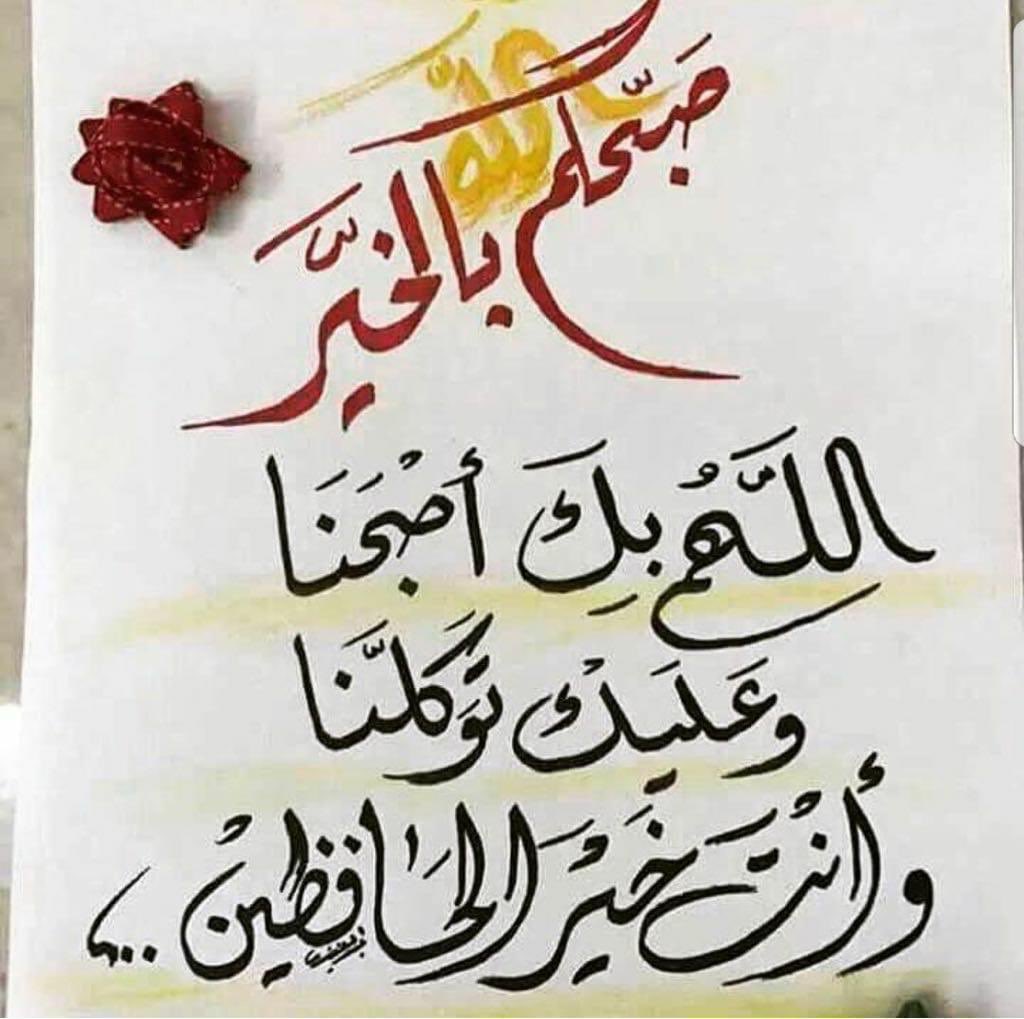 صبّحكم الله
بالخيَّر
اللَّهُم بِكَ أصْبَحَنَا
وعَليَكْ تَوَكلنَّا
وأنْتَ خَيْرَ الحَافظِينْ ..،